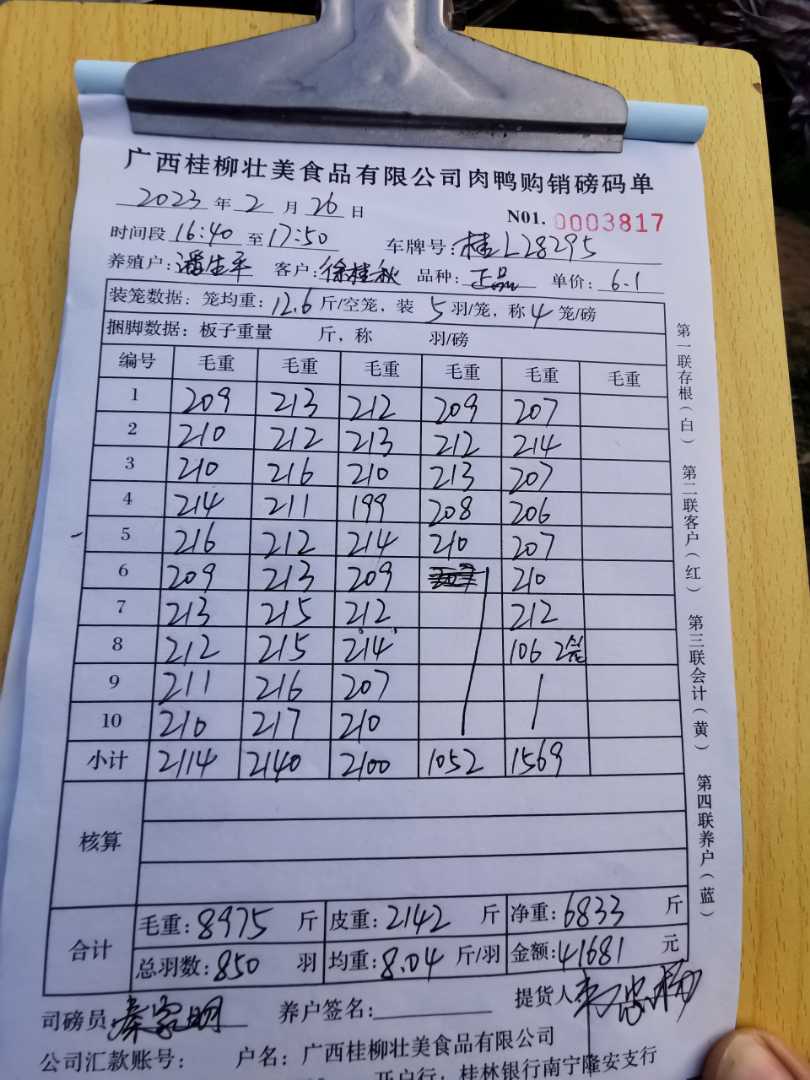 广西桂柳壮美食品有限公司肉鸭购销磅码单
2023 年 2 月 26 日 N01. 0003817
时间段 16:40 至 17:50 车牌号: 桂L28295
养殖户: 潘生平 客户: 徐桂秋 品种: 正品 单价: 6.1
装笼数据: 笼均重: 12.6 斤/空笼, 装 5 羽/笼, 称 4 笼/磅
捆脚数据: 板子重量 斤, 称 羽/磅
编号 毛重 毛重 毛重 毛重 毛重 毛重
1 209 213 212 209 207
2 210 212 213 212 214
3 210 216 210 213 207
4 214 211 199 208 206
5 216 212 214 210 207
6 209 213 209 210
7 213 215 212 212
8 212 215 214 106 2笼
9 211 216 207
10 210 217 210
小计 2114 2140 2100 1052 1569
核算
合计
毛重: 8975 斤 皮重: 2142 斤 净重: 6833 斤
总羽数: 850 羽 均重: 8.04 斤/羽 金额: 41681 元
司磅员: 秦家明 养户签名: 提货人
公司汇款账号: 户名: 广西桂柳壮美食品有限公司
开户行: 桂林银行南宁隆安支行
第一联存根(白) 第二联客户(红) 第三联会计(黄) 第四联养户(蓝)